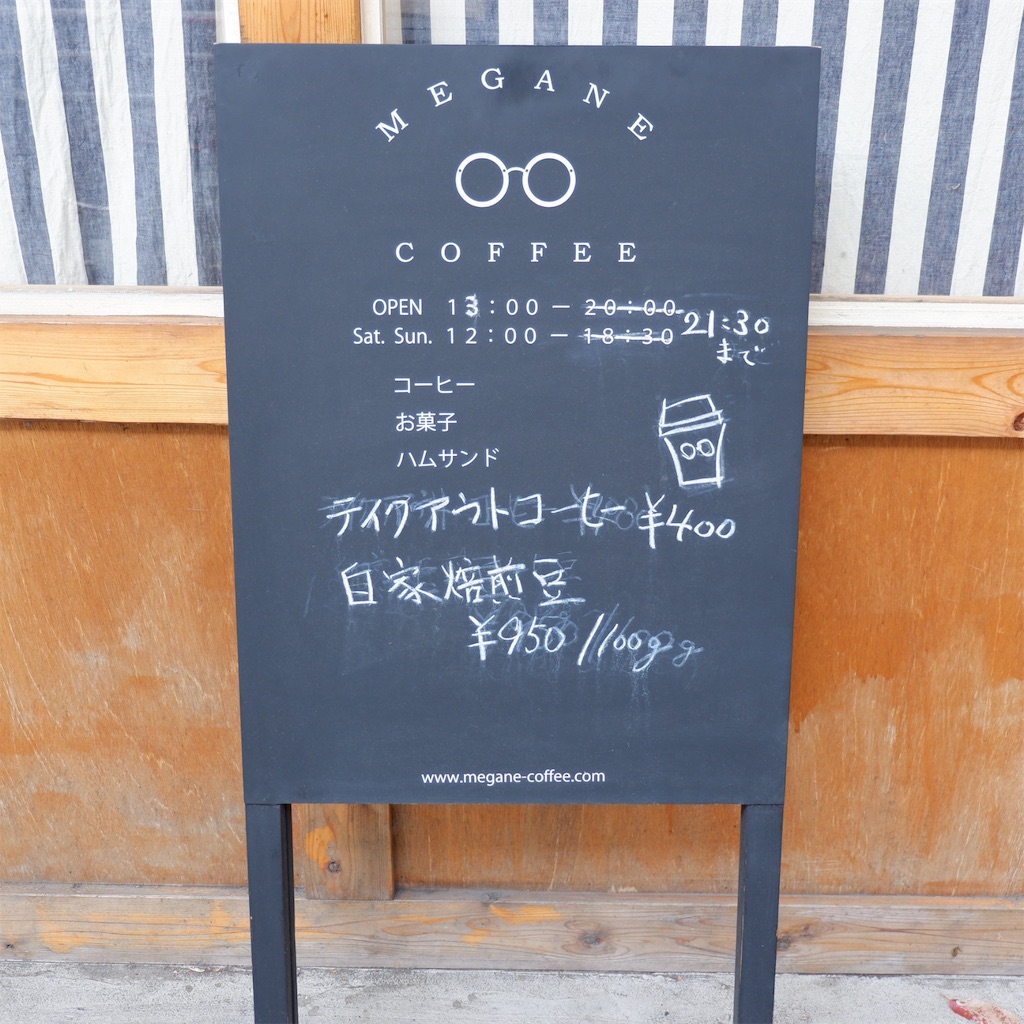 MEGANE
COFFEE
OPEN 13:00 － 20:00
Sat. Sun. 12:00 － 18:30 21:30
まで
コーヒー
お菓子
ハムサンド
テイクアウトコーヒー ¥400
自家焙煎豆
¥950 /100g
www.megane-coffee.com